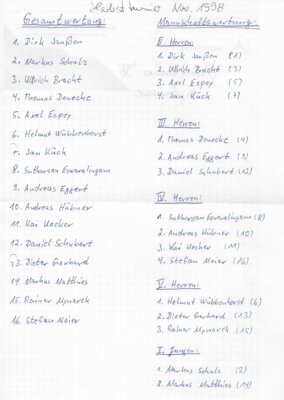 Herbstturnier Nov. 1998
Gesamtwertung:
1. Dirk Janßen
2. Markus Schulz
3. Ullrich Bracht
4. Thomas Denecke
5. Axel Espey
6. Helmut Wübbenhorst
7. Jan Kück
8. Sutharsan Eswaralingam
9. Andreas Eggert
10. Andreas Hübner
11. Kai Uecker
12. Daniel Schubert
13. Dieter Gerhard
14. Markus Matthies
15. Rainer Mynarek
16. Stefan Meier
Mannschaftswertung:
II. Herren:
1. Dirk Janßen (1)
2. Ullrich Bracht (3)
3. Axel Espey (5)
4. Jan Kück (7)
III. Herren:
1. Thomas Denecke (4)
2. Andreas Eggert (9)
3. Daniel Schubert (12)
IV. Herren:
1. Sutharsan Eswaralingam (8)
2. Andreas Hübner (10)
3. Kai Uecker (11)
4. Stefan Meier (16)
V. Herren:
1. Helmut Wübbenhorst (6)
2. Dieter Gerhard (13)
3. Rainer Mynarek (15)
I. Jungen:
1. Markus Schulz (2)
2. Markus Matthies (14)